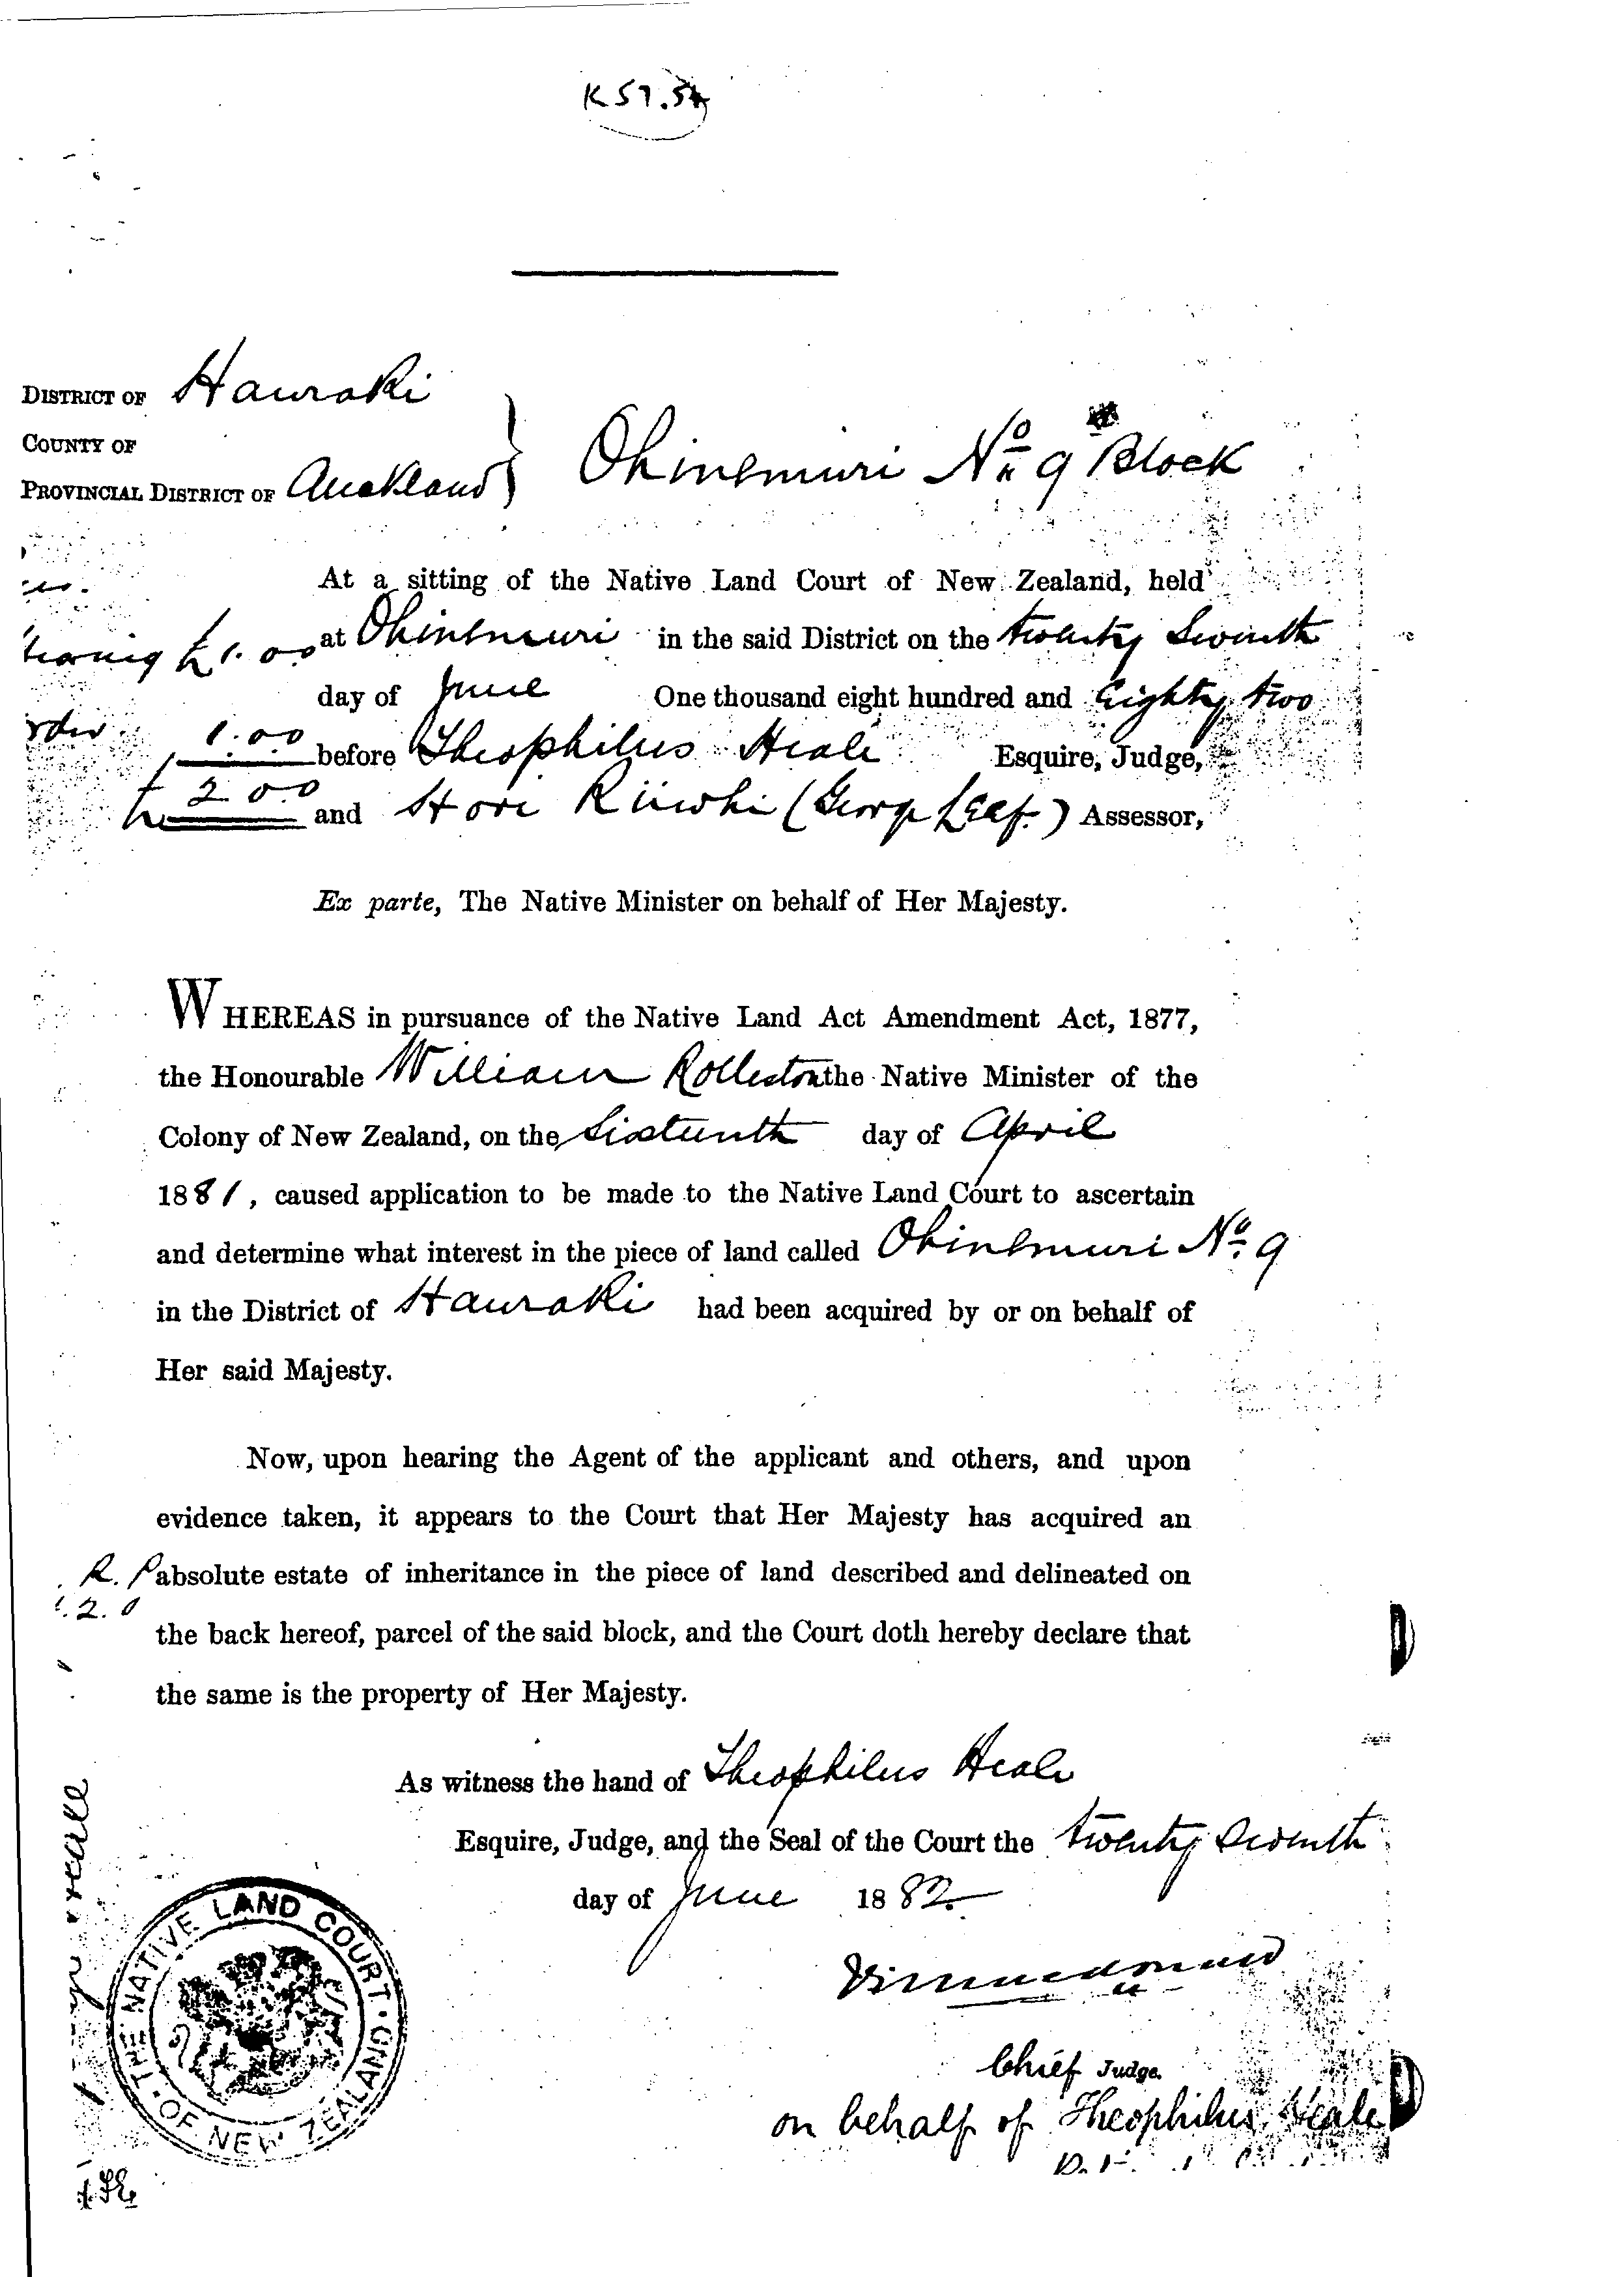 K 57.
DISTRICT OF Hauraki
COUNTY OF
PROVINCIAL DISTRICT OF Auckland } Ohinemuri No 9 Block
At a sitting of the Native Land Court of New Zealand, held
£1.0.0 at Ohinemuri in the said District on the twenty Seventh
day of June One thousand eight hundred and Eighty two
1.0.0 before Theophilus Heale Esquire, Judge,
£2.0.0 and Hori Riiwhi (George Leaf.) Assessor,
Ex parte, The Native Minister on behalf of Her Majesty.
WHEREAS in pursuance of the Native Land Act Amendment Act, 1877,
the Honourable William Rolleston the Native Minister of the
Colony of New Zealand, on the Sixteenth day of April
1881, caused application to be made to the Native Land Court to ascertain
and determine what interest in the piece of land called Ohinemuri No. 9
in the District of Hauraki had been acquired by or on behalf of
Her said Majesty.
Now, upon hearing the Agent of the applicant and others, and upon
evidence taken, it appears to the Court that Her Majesty has acquired an
R. P absolute estate of inheritance in the piece of land described and delineated on
2. 0
the back hereof, parcel of the said block, and the Court doth hereby declare that
the same is the property of Her Majesty.
As witness the hand of Theophilus Heale
Esquire, Judge, and the Seal of the Court the twenty Seventh
day of June 1882.
THE NATIVE LAND COURT OF NEW ZEALAND
Chief Judge.
on behalf of Theophilus Heale